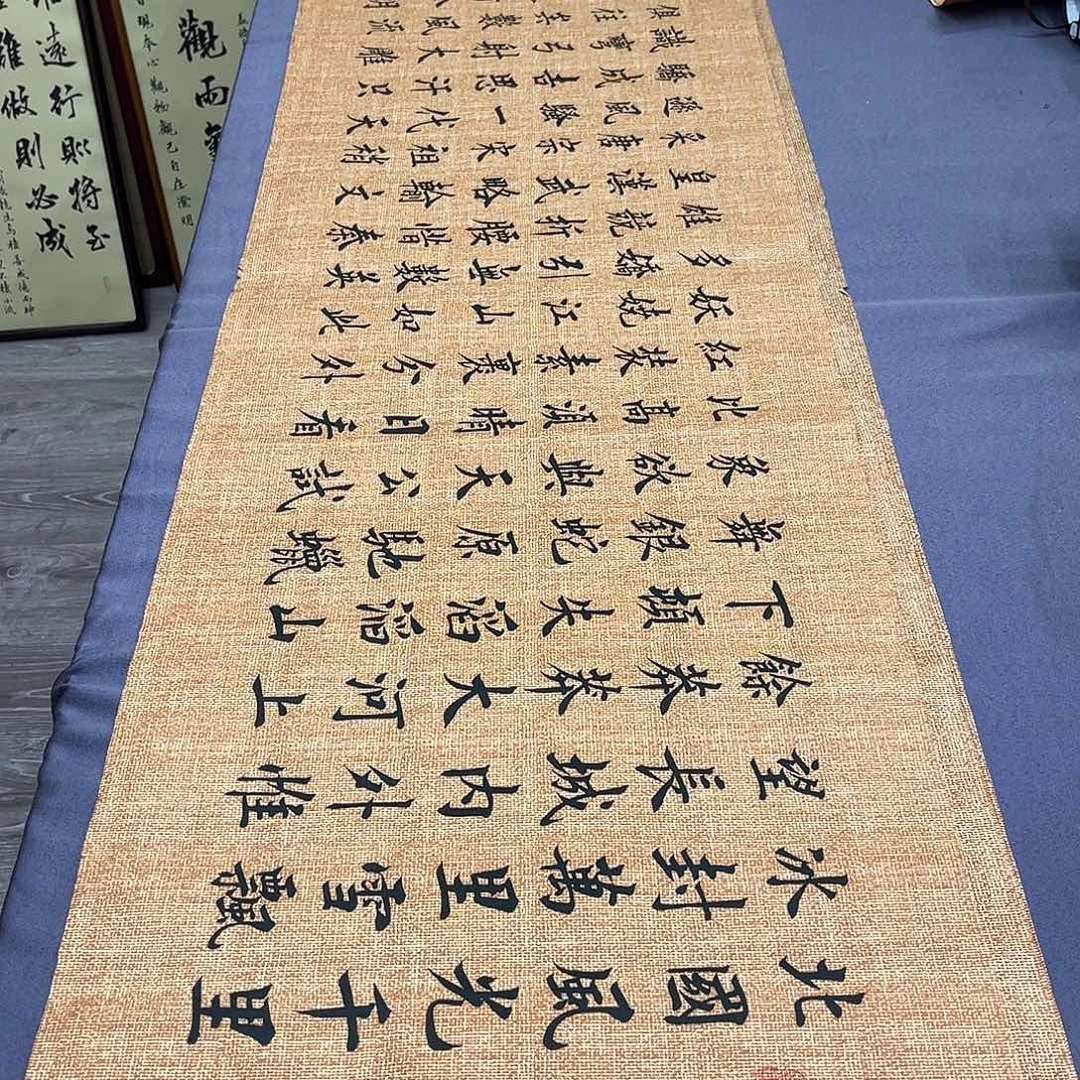 北國風光千里
冰封萬里雪飄
望長城內外惟
餘莽莽大河上
下頓失滔滔山
舞銀蛇原馳蠟
象欲與天公試
比高須晴日看
紅裝素裹分外
妖嬈江山如此
多嬌引無數英
雄競折腰惜秦
皇漢武略輸文
采唐宗宋祖稍
遜風騷一代天
驕成吉思汗只
識彎弓射大雕
俱往矣數風流
觀雨
現本心觀物觀己自在澄明
遠行則將至
難做則必成